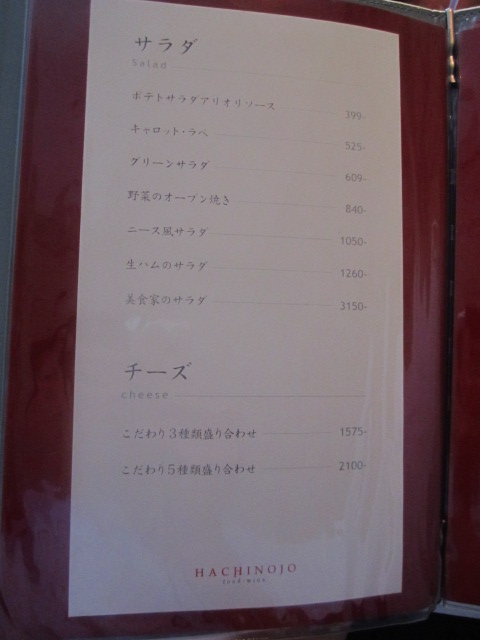 サラダ
Salad
ポテトサラダアリオリソース 399-
キャロット・ラペ 525-
グリーンサラダ 609-
野菜のオーブン焼き 840-
ニース風サラダ 1050-
生ハムのサラダ 1260-
美食家のサラダ 3150-
チーズ
cheese
こだわり3種類盛り合わせ 1575-
こだわり5種類盛り合わせ 2100-
HACHINOJO
food・wine